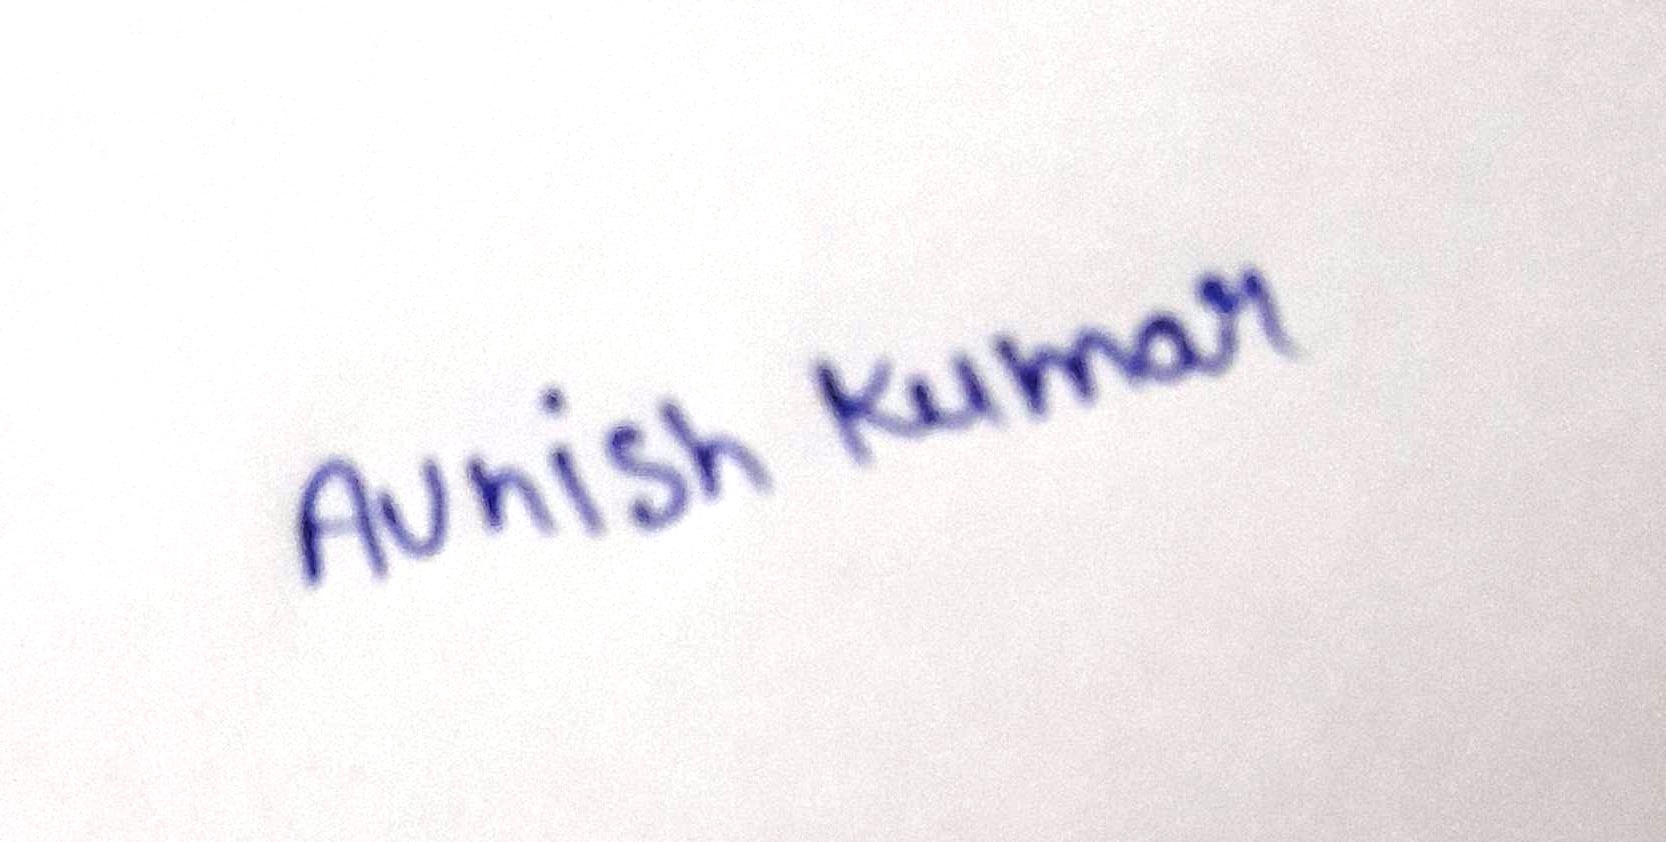 Avnish Kumar